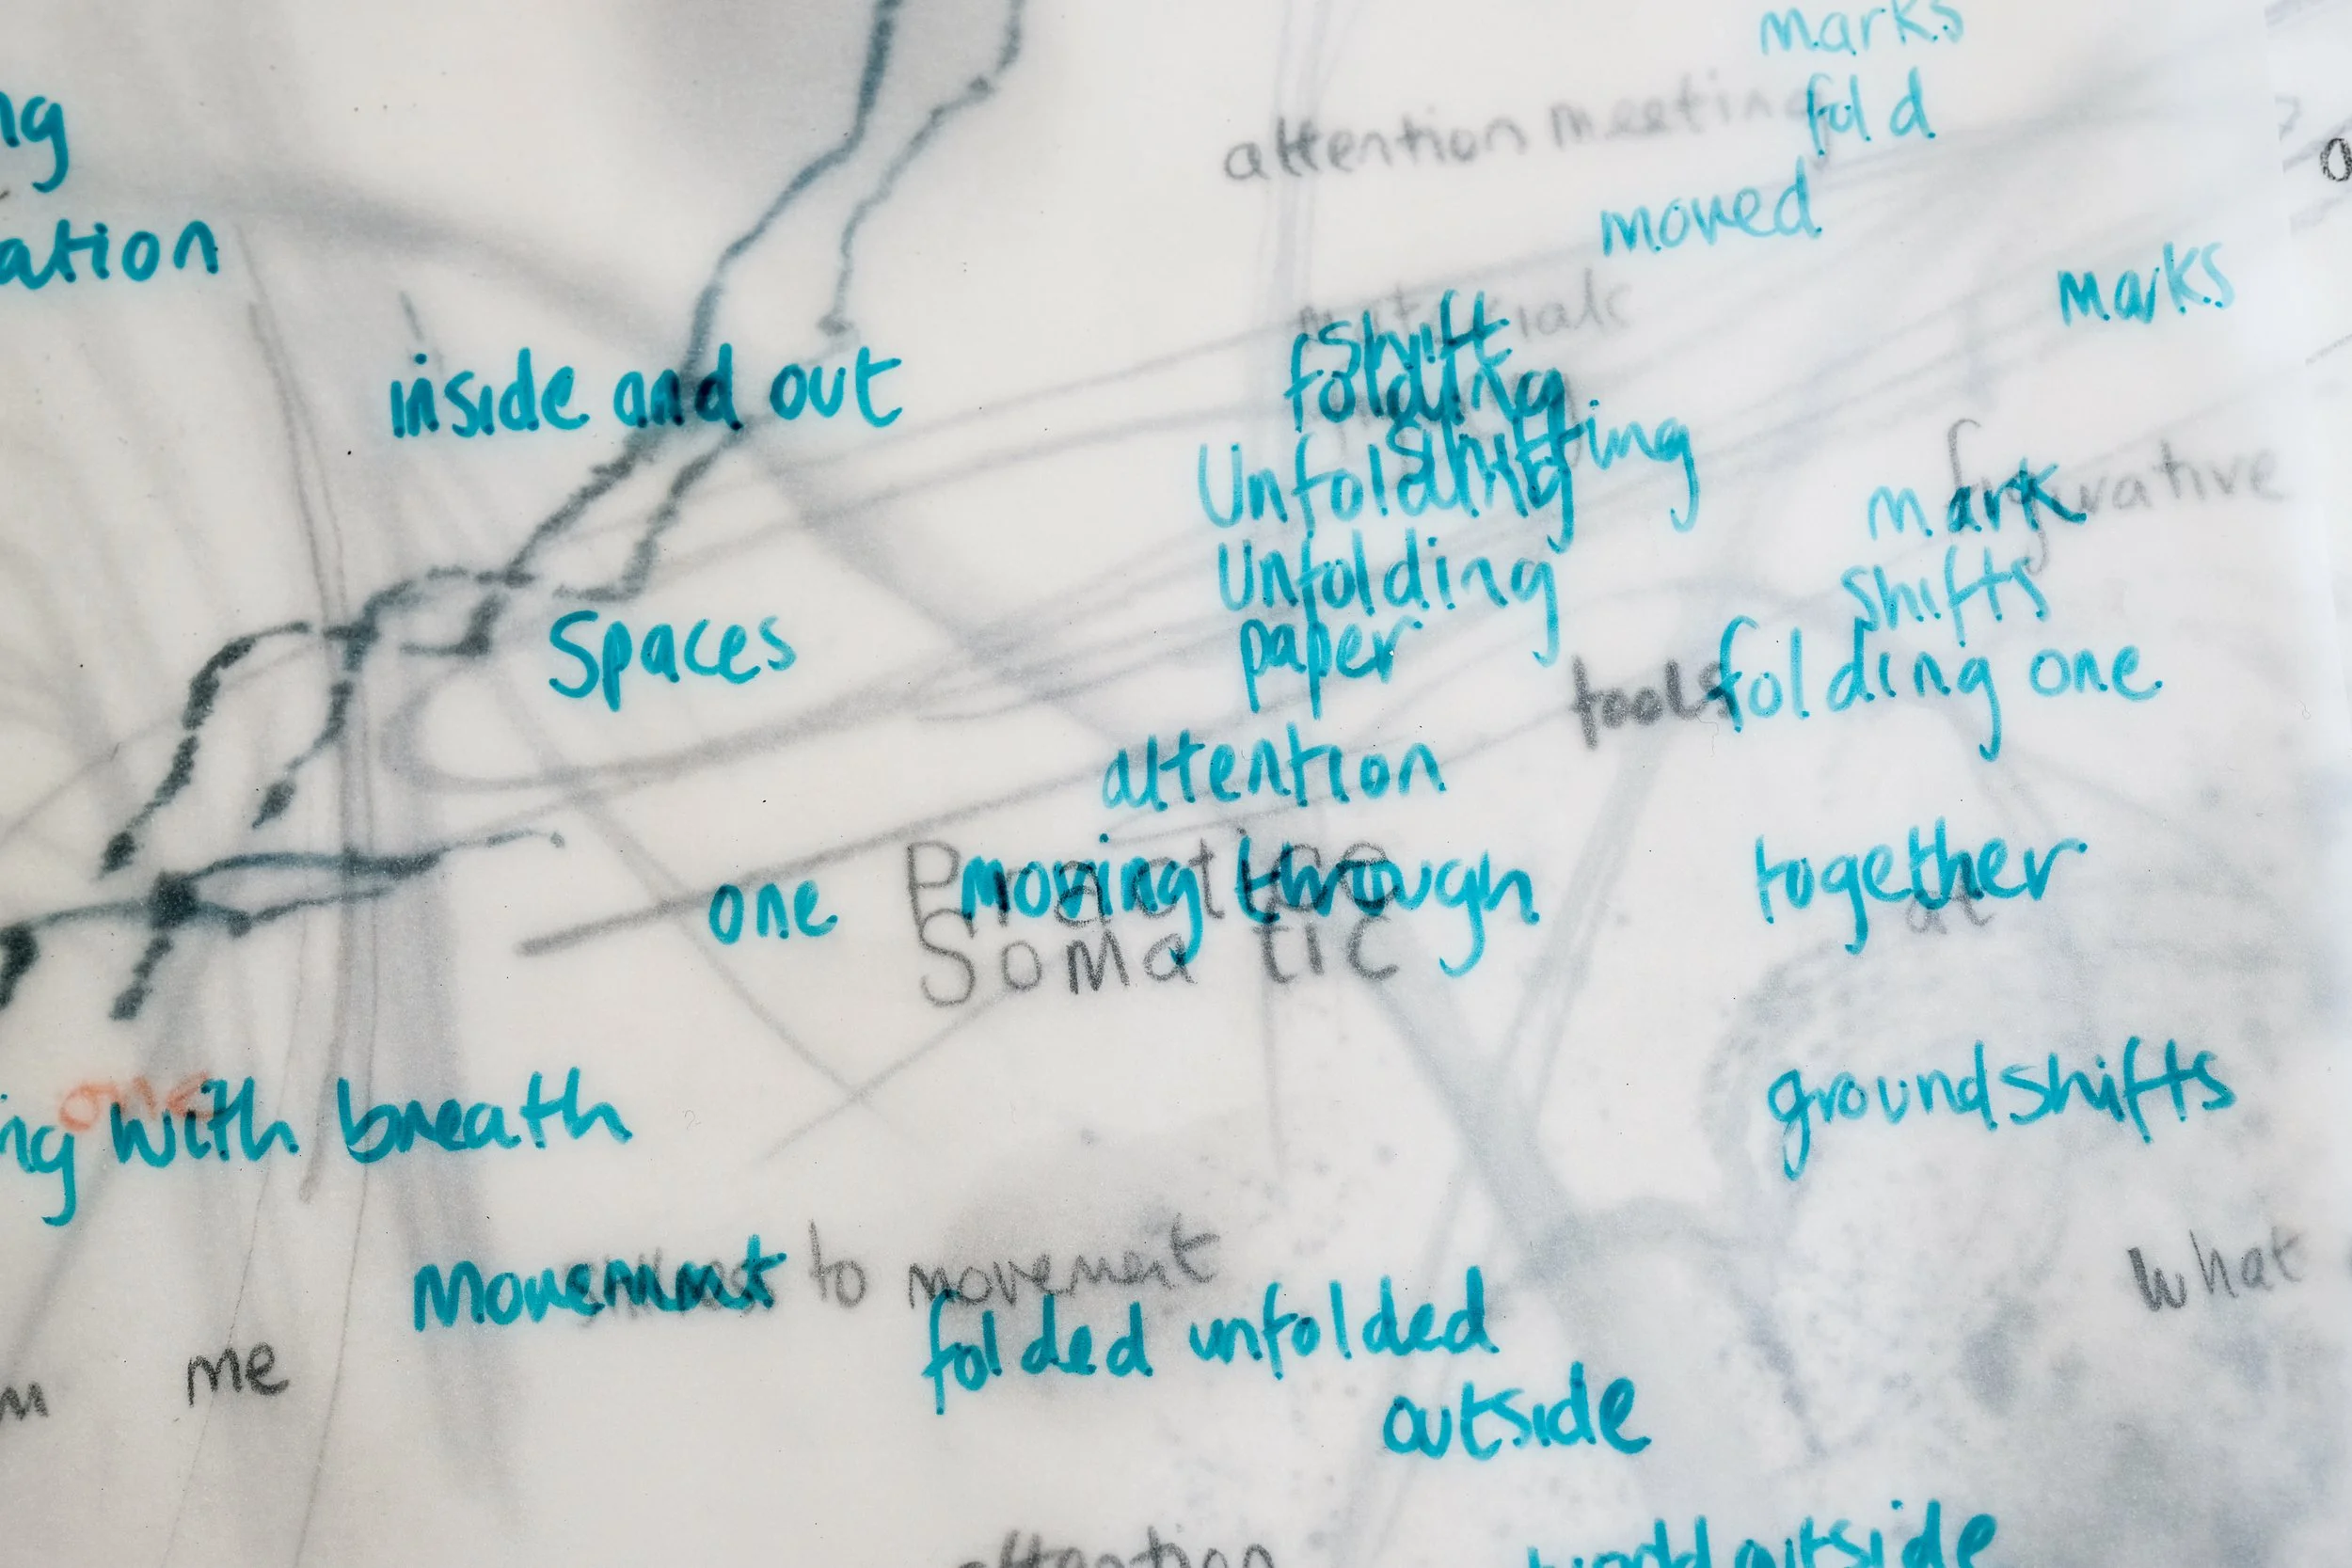 marks
fold
attention meeting
moved
marks
shift
folding
inside and out
shifting
Unfolding
mark
Unfolding
shifts
paper
Spaces
tools
folding one
attention
together
one
moving through
Practice
Somatic
at
one
with breath
groundshifts
Movement
to movement
what
folded unfolded
me
outside
attention
world outside